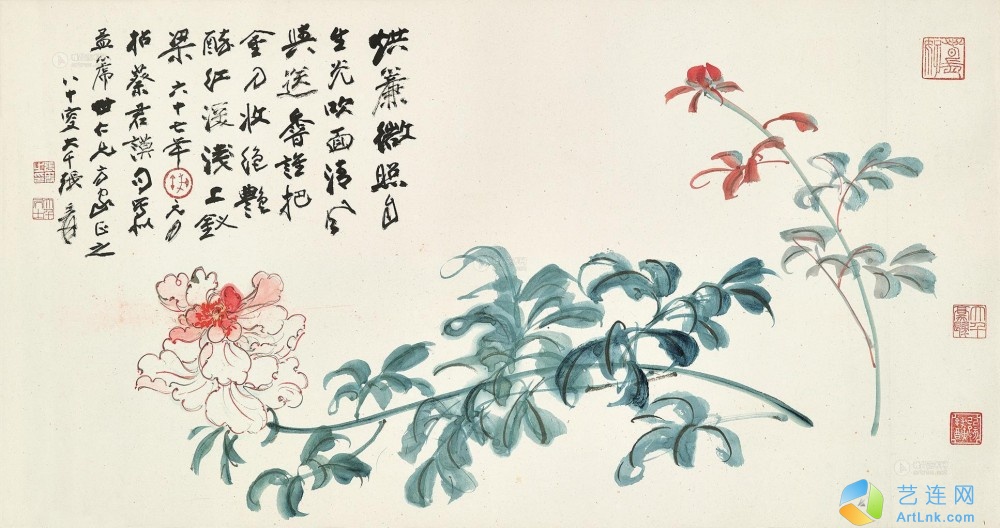 烘簾微照自
生光吹面清風
與送香誰把
金刀收絕艷
醉紅深淺上釵
梁 六十七年元月
拈蔡君謨句寫似
益仁兄方家正之
八十叟大千張爰
艺连网
ArtLnk.com